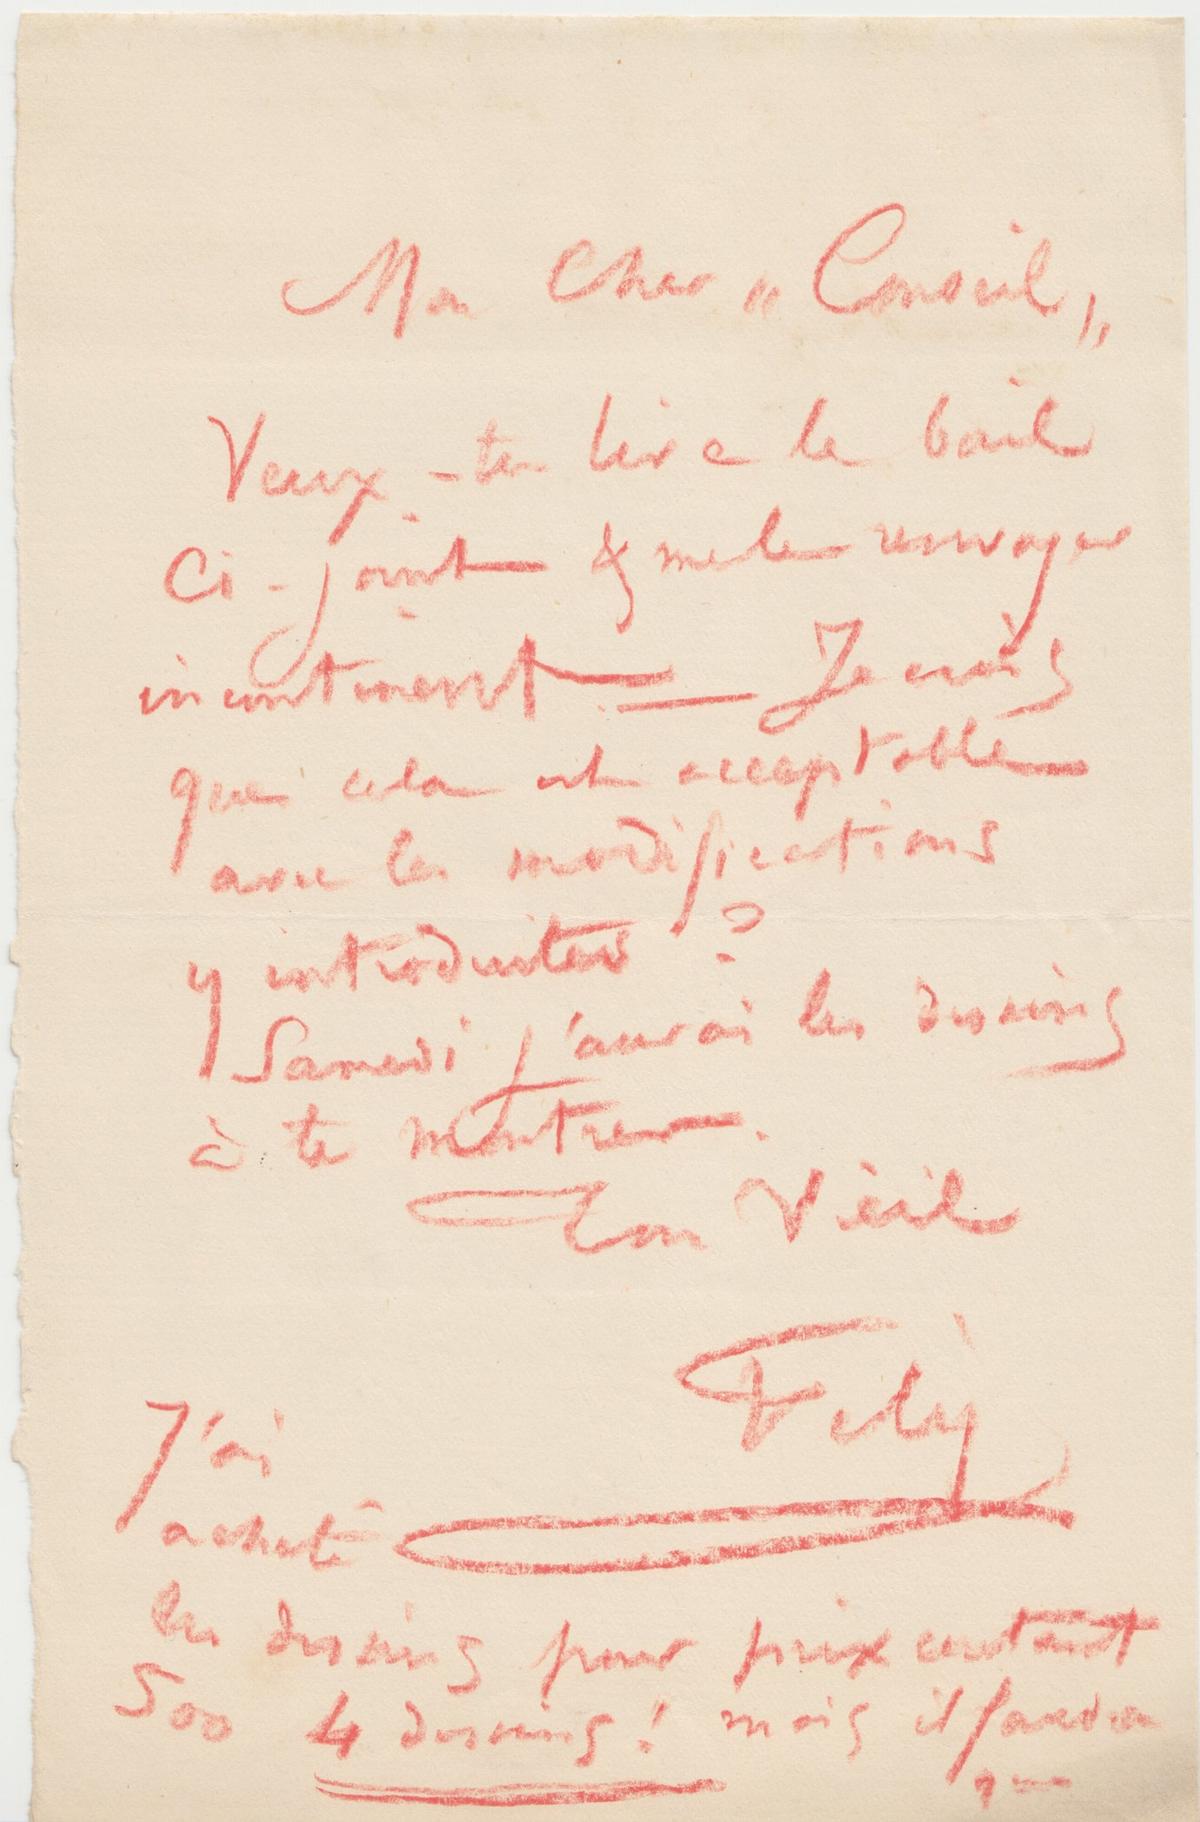 Mon Cher „ Conseil „
Veux-tu lire le bail
Ci-joint & me le renvoyer
incontinent — Je crois
que cela est acceptable
avec les modifications
y introduites ?
Samedi j'aurai les dessins
à te montrer.
Ton Vieil
Fély
J'ai
acheté
les dessins pour prix coutant
500 4 dessins ! mais il faudra
que